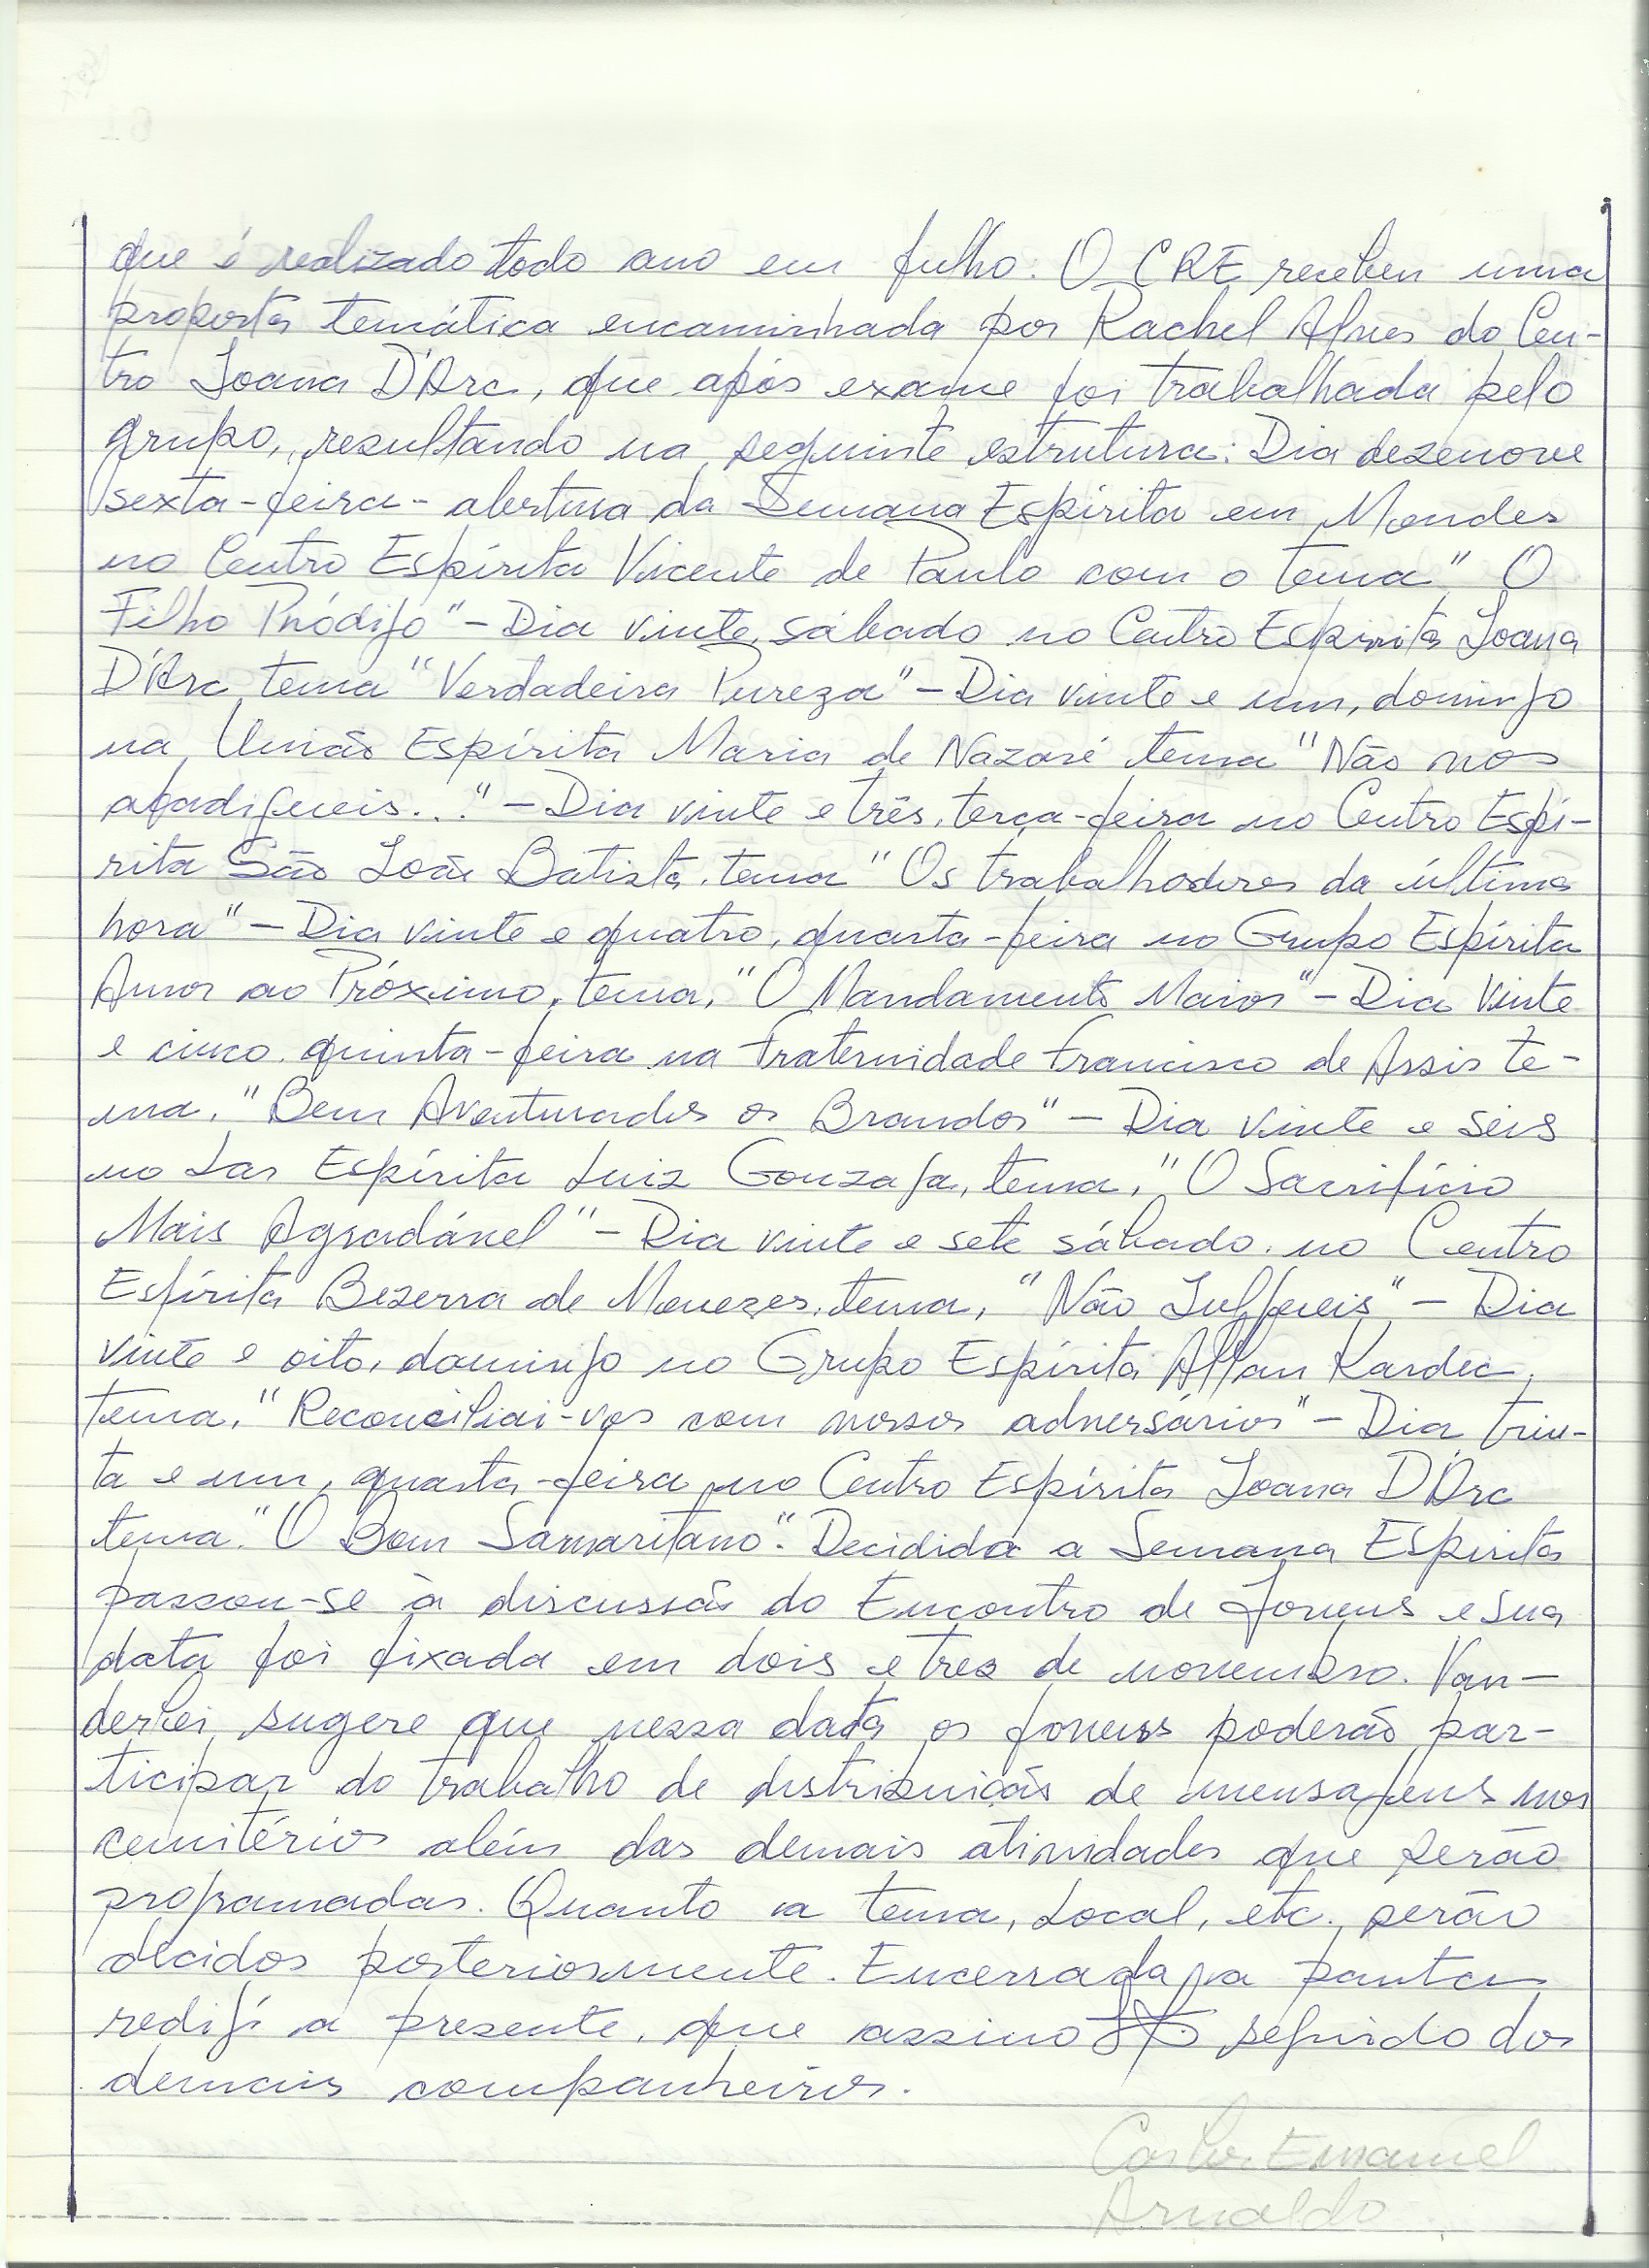 que é realizado todo ano em julho. O CRE recebeu uma
proposta temática encaminhada por Rachel Agnes do Cen-
tro Joana D'Arc, que após exame foi trabalhada pelo
grupo, resultando na seguinte estrutura: Dia dezenove
sexta-feira - abertura da Semana Espírita em Mendes
no Centro Espírita Vicente de Paulo com o tema "O
Filho Pródigo" - Dia vinte, sábado no Centro Espírita Joana
D'Arc, tema "Verdadeira Pureza" - Dia vinte e um, domingo
na União Espírita Maria de Nazaré tema "Não nos
afadigueis..." - Dia vinte e três, terça-feira no Centro Espí-
rita São João Batista, tema "Os trabalhadores da última
hora" - Dia vinte e quatro, quarta-feira no Grupo Espírita
Amor ao Próximo, tema, "O Mandamento Maior" - Dia vinte
e cinco, quinta-feira na Fraternidade Francisco de Assis te-
ma, "Bem Aventurados os Brandos" - Dia vinte e seis
no Lar Espírita Luiz Gonzaga, tema, "O Sacrifício
Mais Agradável" - Dia vinte e sete sábado, no Centro
Espírita Bezerra de Menezes, tema, "Não Julgueis" - Dia
vinte e oito, domingo no Grupo Espírita Allan Kardec,
tema, "Reconciliai-vos com vossos adversários" - Dia trin-
ta e um, quarta-feira, no Centro Espírita Joana D'Arc
tema. "O Bom Samaritano". Decidida a Semana Espírita
passou-se à discussão do Encontro de Jovens e sua
data foi fixada em dois e tres de novembro. Van-
derlei sugere que nessa data os jovens poderão par-
ticipar do trabalho de distribuição de mensagens nos
cemitérios além das demais atividades que serão
programadas. Quanto a tema, local, etc., serão
decidos posteriormente. Encerrada a pauta
redigi a presente, que assino seguido dos
demais companheiros.
Carlos Emanuel
Arnaldo